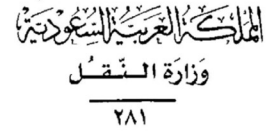 المملكة العربية السعودية
وزارة النقل
٢٨١